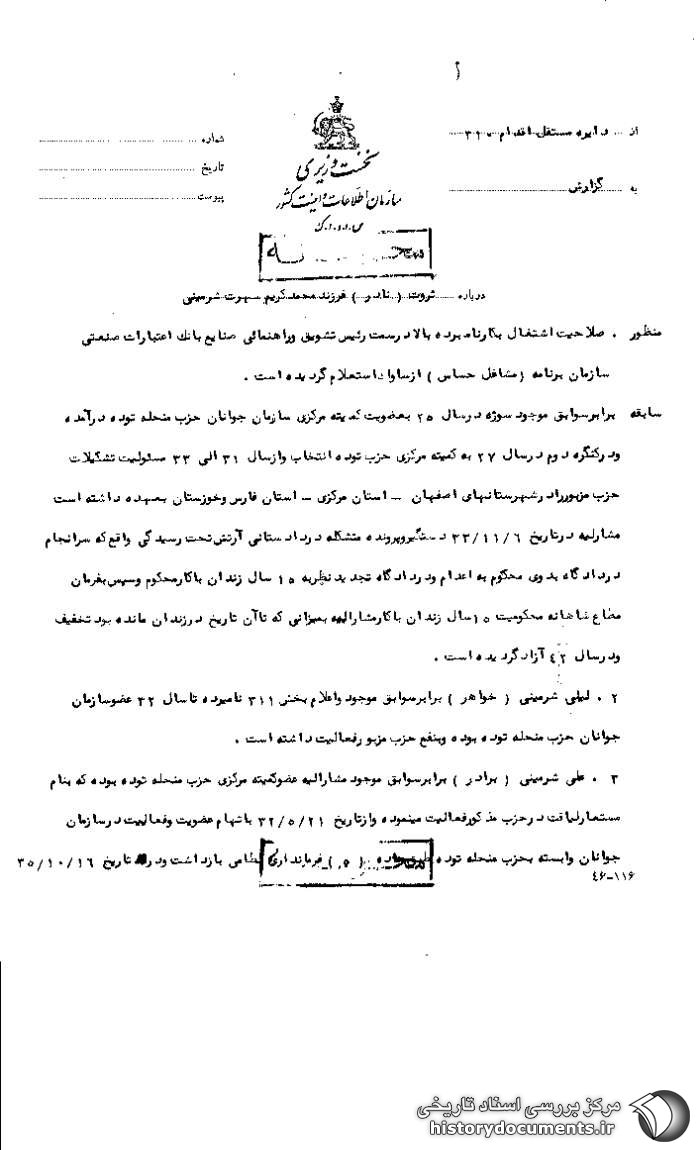 از دایره مستقل اقدام ۳۲۰
شماره
تاریخ
به گزارش
پیوست
نخست وزیری
سازمان اطلاعات و امنیت کشور
س.ا.و.ا.ک
درباره ثروت (نادر) فرزند محمدکریم شهرت شرمینی
منظور . صلاحیت اشتغال بکار نامبرده بالا در سمت رئیس تشویق و راهنمائی صنایع بانک اعتبارات صنعتی
سازمان برنامه (مشاغل حساس) از ساواک استعلام گردیده است .
سابقه برابر سوابق موجود سوژه در سال ۲۵ بعضویت کمیته مرکزی سازمان جوانان حزب منحله توده درآمده
و در کنگره دوم در سال ۲۷ به کمیته مرکزی حزب توده انتخاب و از سال ۳۱ الی ۳۳ مسئولیت تشکیلات
حزب مزبور را در شهرستانهای اصفهان – استان مرکزی – استان فارس و خوزستان بعهده داشته است
مشارالیه در تاریخ ۳۳/۱۱/۶ دستگیر و پرونده متشکله در دادستانی آرتش تحت رسیدگی واقع که سرانجام
در دادگاه بدوی محکوم به اعدام و در دادگاه تجدید نظر به ۱۵ سال زندان با کار محکوم و سپس بفرمان
مطاع شاهانه محکومیت ۱۵ سال زندان با کار مشارالیه بمیزانی که تا آن تاریخ در زندان مانده بود تخفیف
و در سال ۴۲ آزاد گردیده است .
۲ . لیلی شرمینی (خواهر) برابر سوابق موجود و اعلام بخش ۳۱۱ نامبرده تا سال ۳۲ عضو سازمان
جوانان حزب منحله توده بوده و بنفع حزب مزبور فعالیت داشته است .
۳ . علی شرمینی (برادر) برابر سوابق موجود مشارالیه عضو کمیته مرکزی حزب منحله توده بوده که بنام
مستعار لیاقت در حزب مذکور فعالیت مینموده و از تاریخ ۳۲/۵/۲۱ باتهام عضویت و فعالیت در سازمان
جوانان وابسته بحزب منحله توده طبق ماده (۵) فرمانداری نظامی بازداشت و در تاریخ ۳۵/۱۰/۱۶
۴۶-۱۱۶
مرکز بررسی اسناد تاریخی
historydocuments.ir